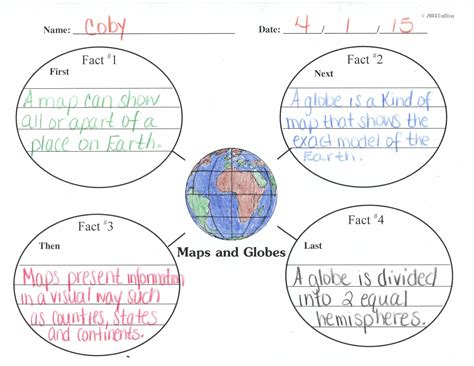 © 2014 Colling
Name: Coby Date: 4 / 1 / 15
Fact #1
First
A map can show
all or apart of a
place on Earth.
Fact #2
Next
A globe is a kind of
map that shows the
exact model of the
Earth.
Maps and Globes
Fact #3
Then
Maps present information
in a visual way such
as counties, states
and continents.
Fact #4
Last
A globe is divided
into 2 equal
hemispheres.